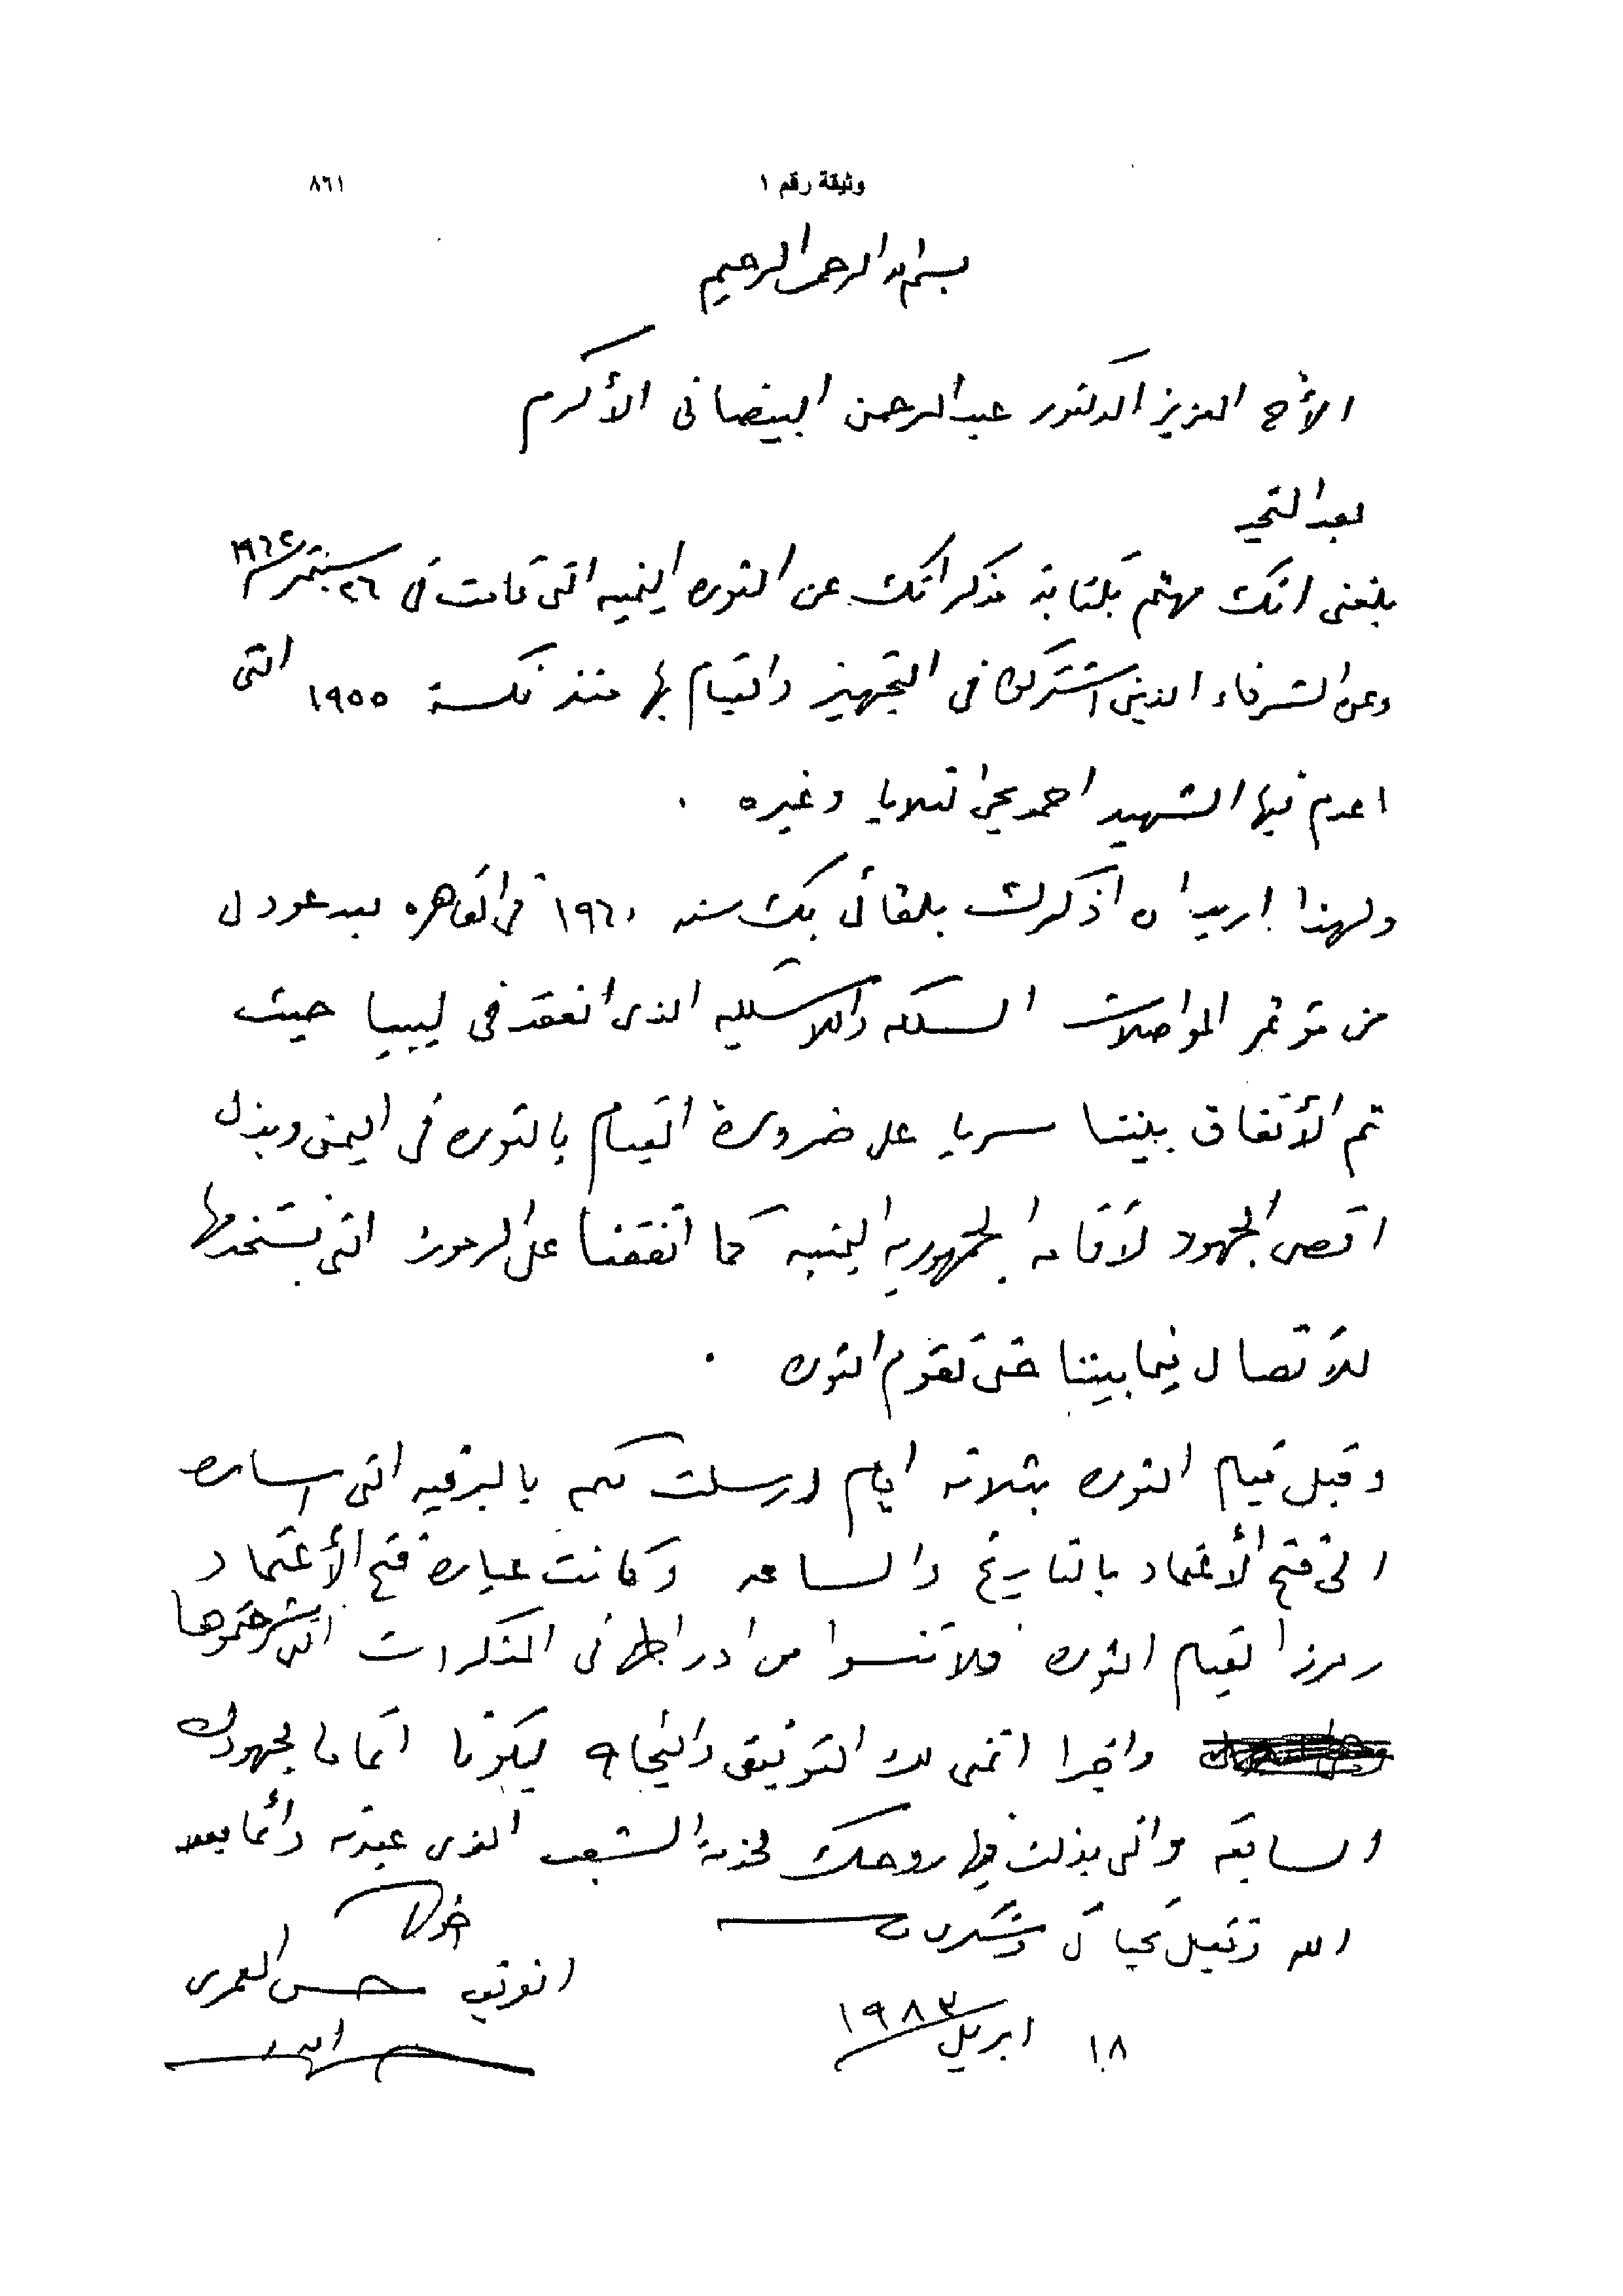 وثيقة رقم ١
٨٦١
بسم الله الرحمن الرحيم
الأخ العزيز الدكتور عبدالرحمن البيضانى الأكرم
بعد التحيه
بلغنى انك مهتم بكتابة مذكراتك عن الثوره اليمنيه التى قامت فى ٢٦ سبتمبر ١٩٦٢
وعن الشرفاء الذين اشتركوا فى التجهيز والقيام بها منذ نكسة ١٩٥٥ التى
اعدم فيها الشهيد احمد يحيى الثلايا وغيره .
ولهذا اريد ان اذكرك بلقائى بك سنه ١٩٦٠ فى القاهره بعد عودتى
من مؤتمر المواصلات السلكيه واللاسلكيه الذى انعقد فى ليبيا حيث
تم الأتفاق بيننا سريا على ضرورة القيام بالثوره فى اليمن وبذل
اقصى الجهود لأقامة الجمهوريه اليمنيه كما اتفقنا على الرموز التى نستخدمها
للأتصال فيما بيننا حتى تقوم الثوره .
وقبل قيام الثوره بثلاثه ايام ارسلت لكم بالبرقيه التى اساره
الى فتح الأعتماد بالتاريخ والساعه وكانت عبارة فتح الأعتماد
رمزا لقيام الثوره فلا تنسوا من ادراجها فى المذكرات التى
واخيرا اتمنى لك التوفيق والنجاح ليكونا اتماما لجهودك
السابقه والتى بذلت فيها روحك لخدمة الشعب الذى عبدته دائما بعد
الله وتقبل تحياتى وشكرى
اخوك
حسن العمرى
١٨ ابريل ١٩٨٣